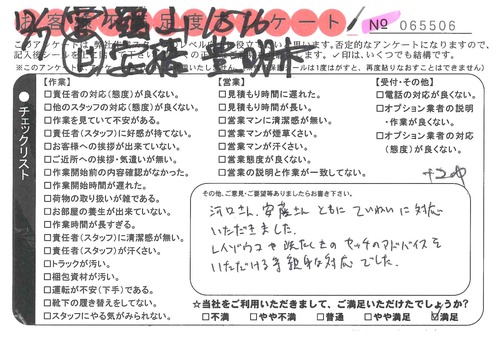 お客様満足度アンケート!
No 065506
このアンケートは、弊社
否定的なアンケートになりますので、
記入後シールを
✓印は、いくつでも結構です。
(※このアンケート
シールは1度はがすと、再度貼りなおすことはできません)
チェックリスト
【作業】
□責任者の対応(態度)が良くない。
□他のスタッフの対応(態度)が良くない。
□作業を見ていて不安がある。
□責任者(スタッフ)に好感が持てない。
□お客様への挨拶が出来ていない。
□ご近所への挨拶・気遣いが無い。
□作業開始前の内容確認がなかった。
□作業開始時間が遅れた。
□荷物の取り扱いが雑である。
□お部屋の養生が出来ていない。
□作業時間が長すぎる。
□責任者(スタッフ)に清潔感が無い。
□責任者(スタッフ)が汗くさい。
□トラックが汚い。
□梱包資材が汚い。
□運転が不安(下手)である。
□靴下の履き替えをしてない。
□スタッフにやる気がみられない。
【営業】
□見積もり時間に遅れた。
□見積もり時間が長い。
□営業マンに清潔感が無い。
□営業マンが煙草くさい。
□営業マンが汗くさい。
□営業態度が良くない。
□営業の説明と作業が一致してない。
【受付・その他】
□電話の対応が良くない。
□オプション業者の説明
・作業が良くない。
□オプション業者の対応
(態度)が良くない。
その他、ご意見・ご要望等ありましたらお書き下さい。
河口さん、安産さん ともに ていねいに対応
いただきました。
セッチのアドバイスを
いただける等 親身な対応でした。
☆当社をご利用いただきまして、ご満足いただけたでしょうか?
□不満 □やや不満 □普通 □やや満足 ☑満足